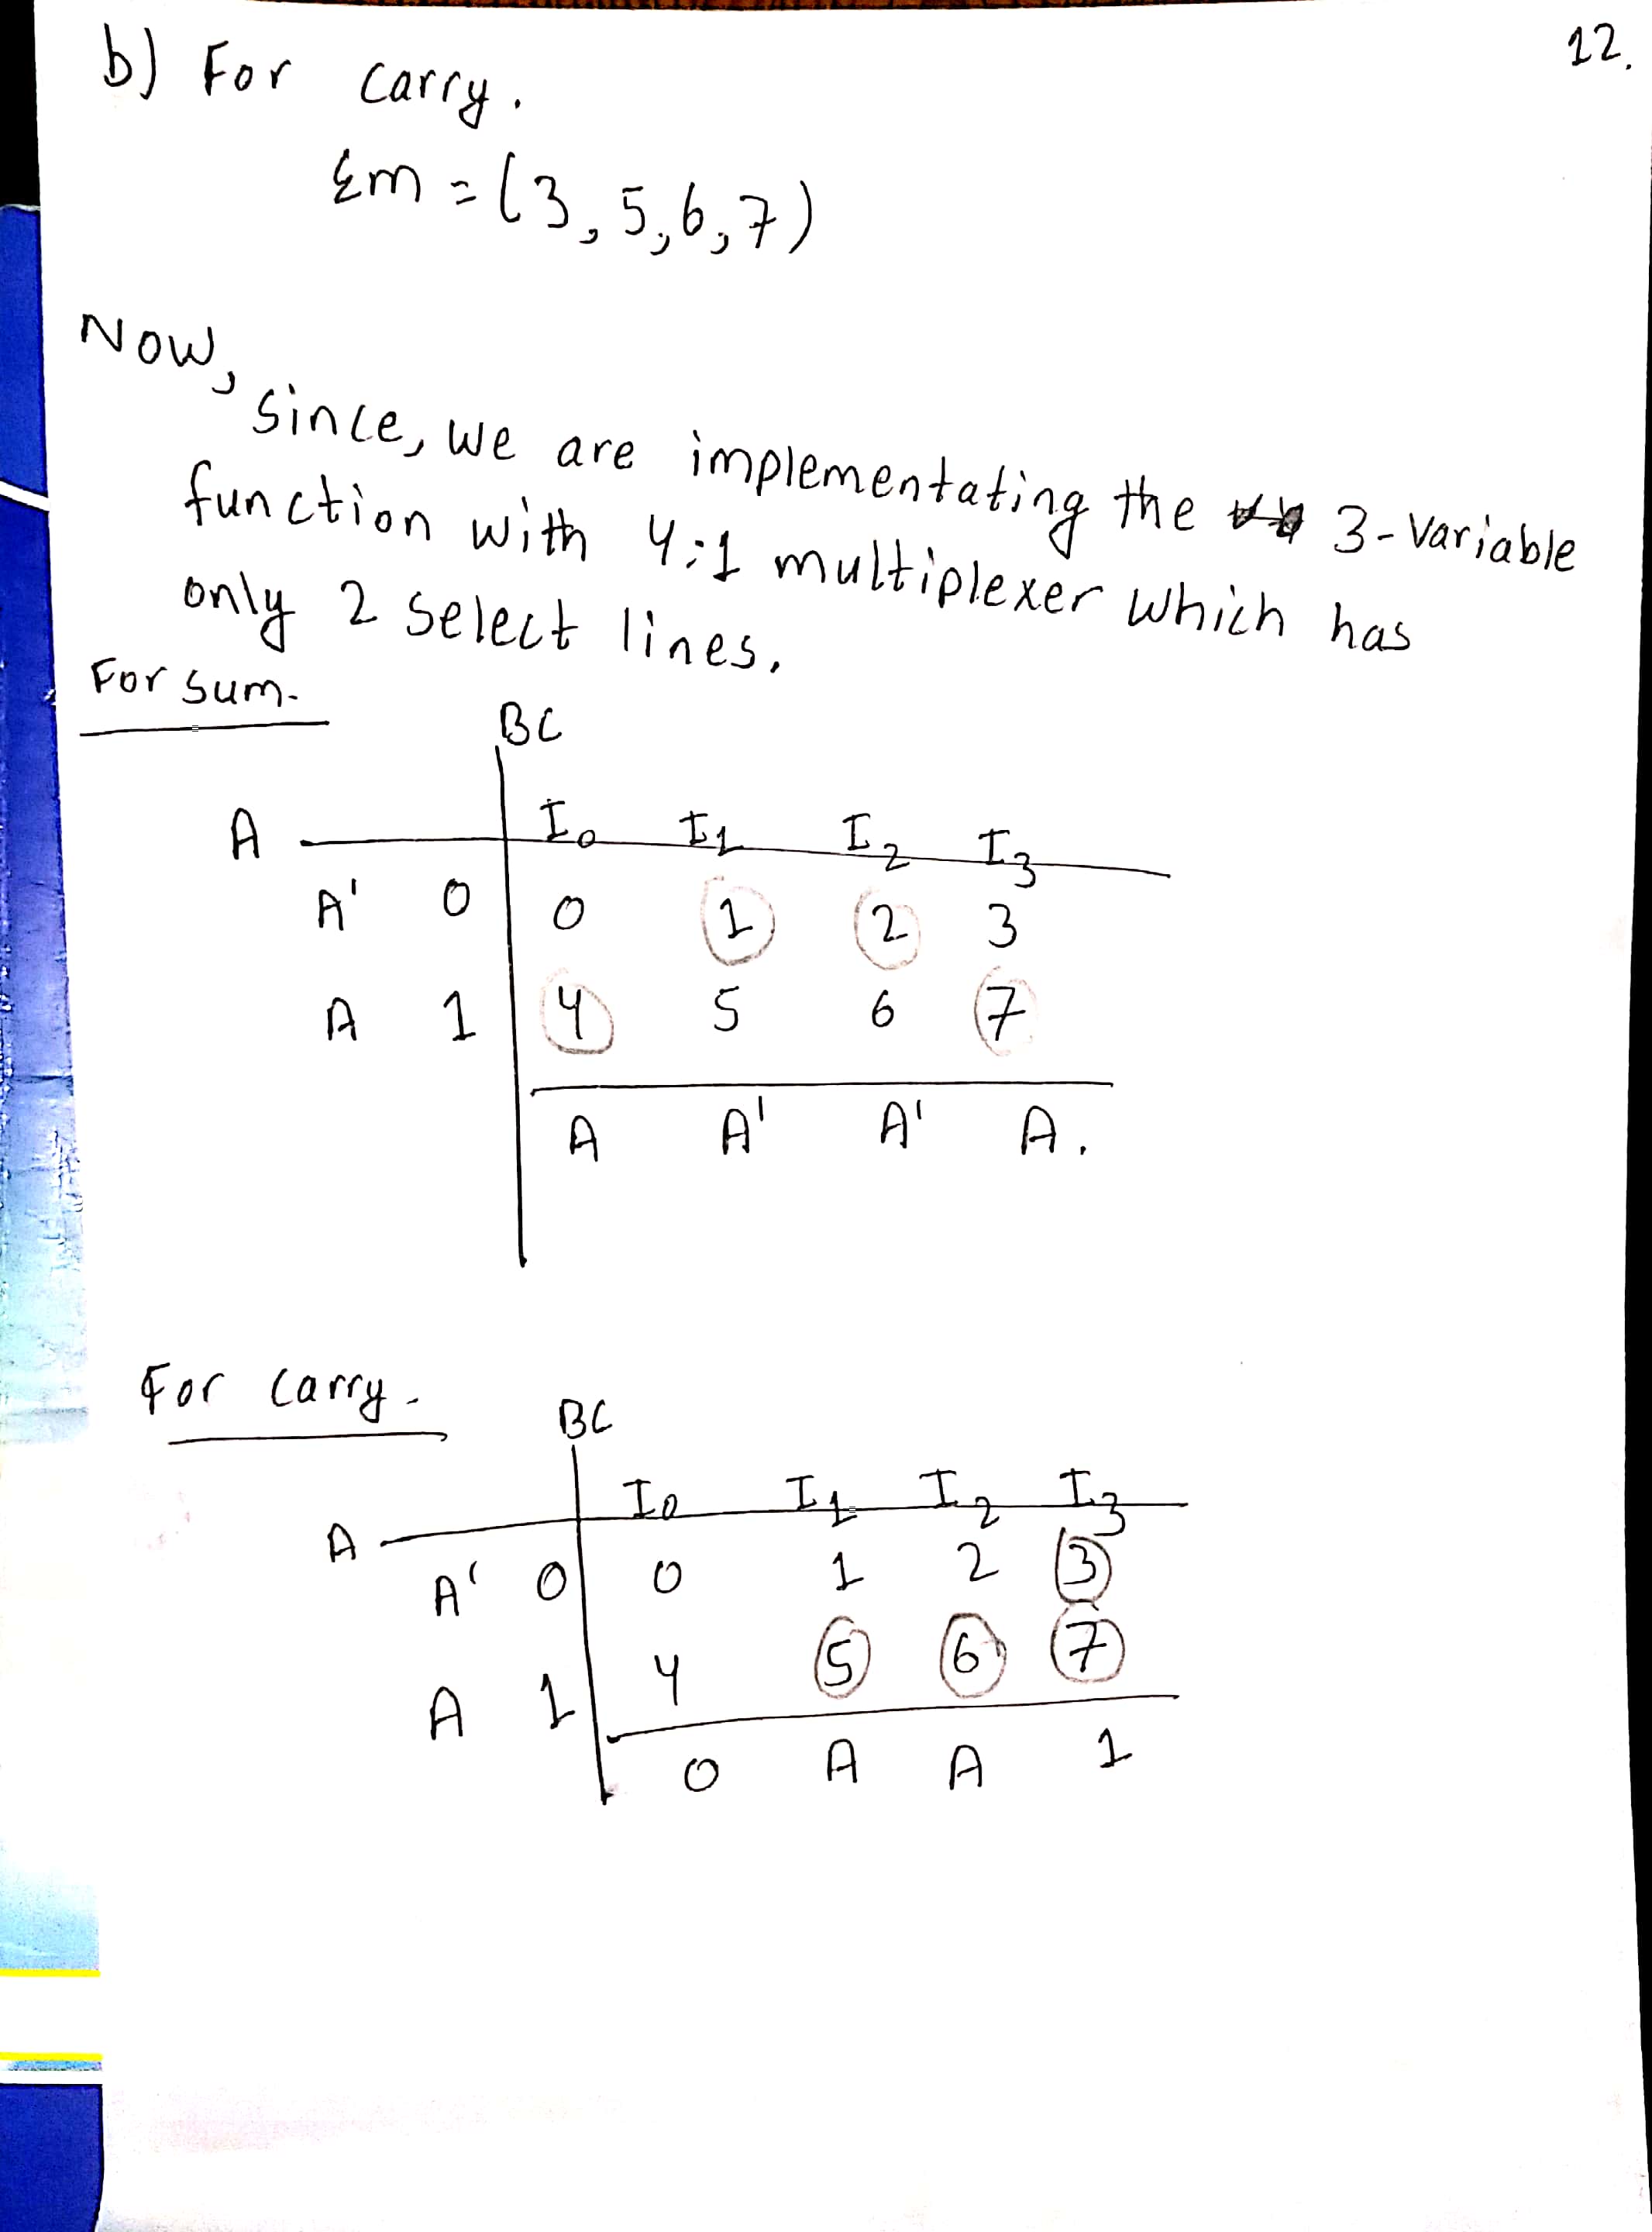 12.
b) For carry.
Σm = (3, 5, 6, 7)
Now,
since, we are implementating the 3-variable
function with 4:1 multiplexer which has
only 2 select lines.
For sum-
BC
A I0 I1 I2 I3
A' 0 0 1 2 3
A 1 4 5 6 7
A A' A' A.
For carry-
BC
A I0 I1 I2 I3
A' 0 0 1 2 3
A 1 4 5 6 7
0 A A 1